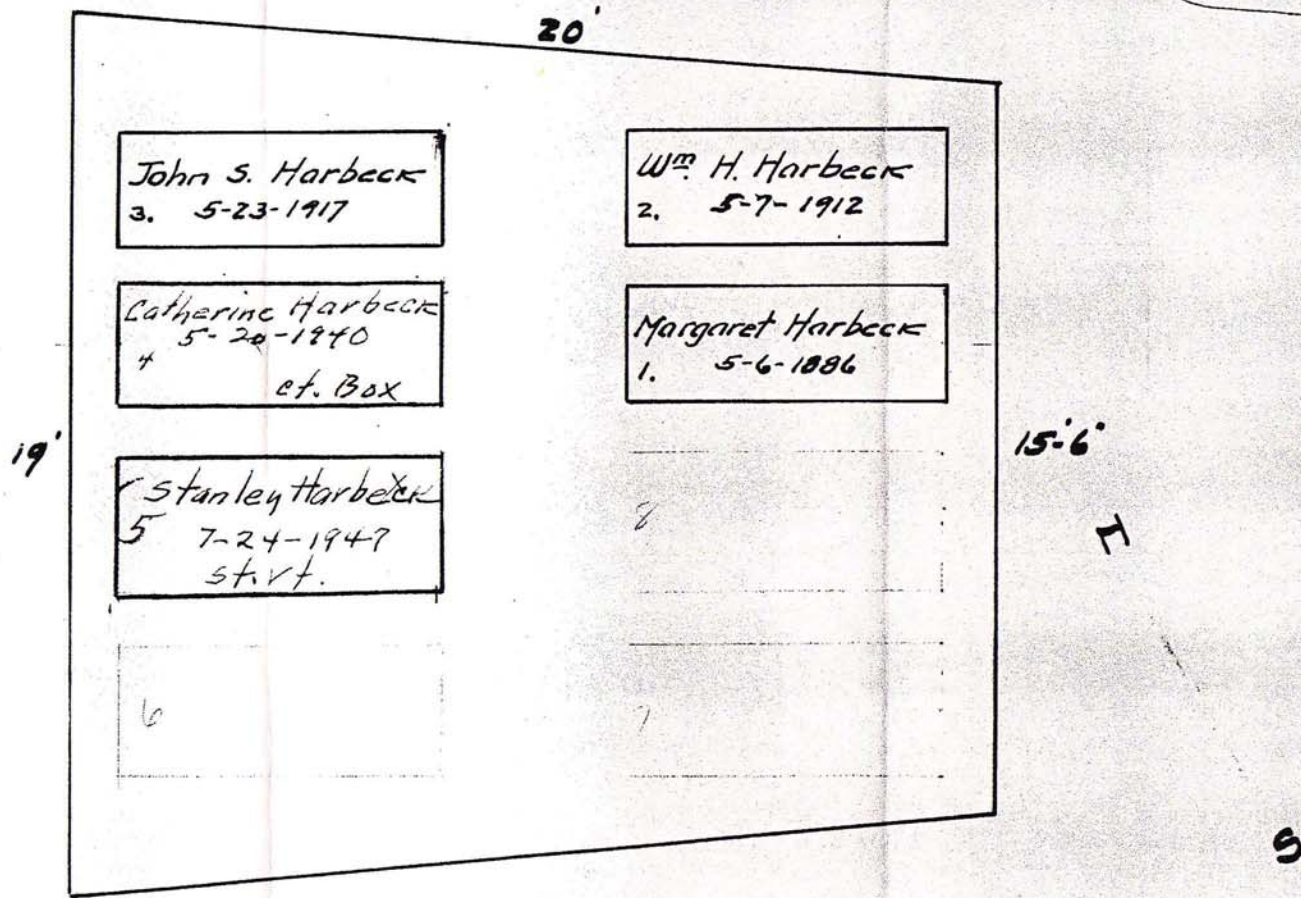 20'
John S. Harbeck
3. 5-23-1917
Wm. H. Harbeck
2. 5-7-1912
Catherine Harbeck
5-20-1940
4
ct. Box
Margaret Harbeck
1. 5-6-1886
19'
15'-6"
Stanley Harbeck
5 7-24-1947
st. vt.
8
I
6
7
S